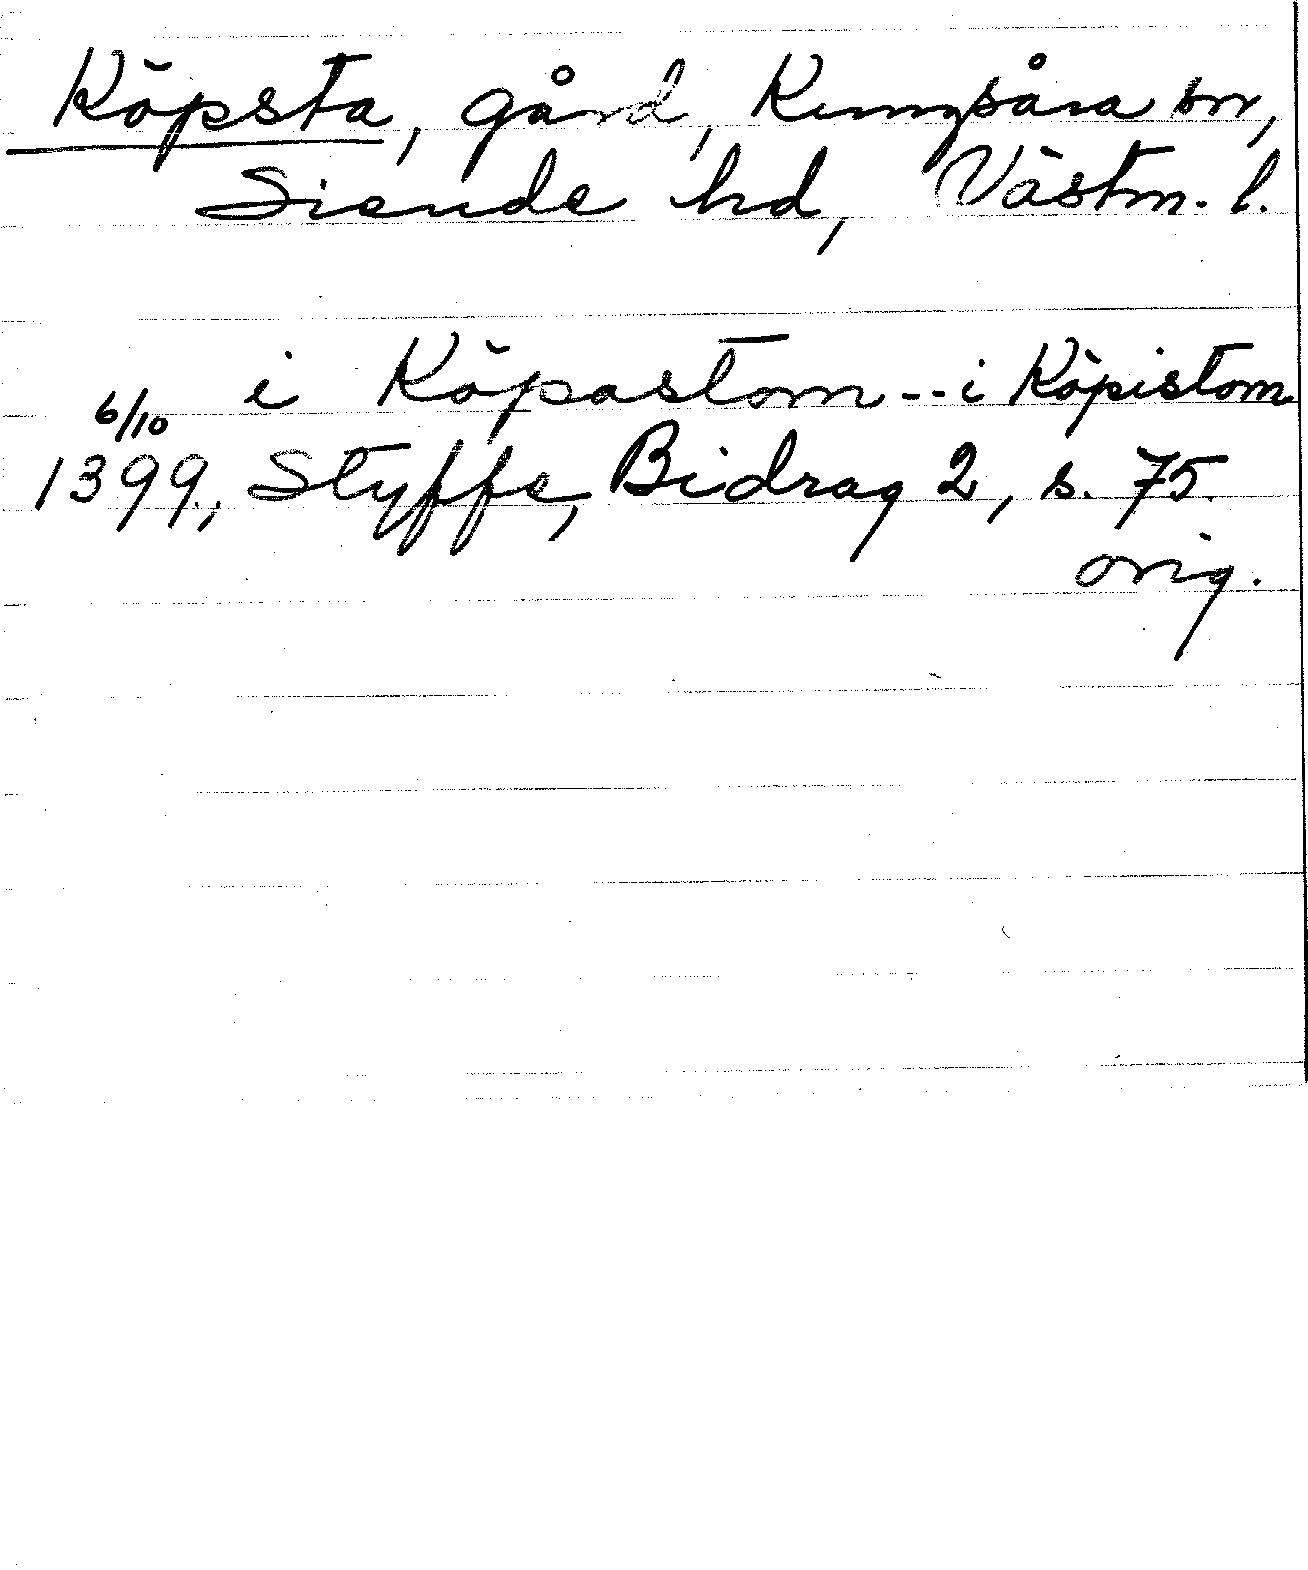 Köpsta, gård, Kungsåra sn,
Siende hd, Västm. l.
i Köpastom -- i Köpistom
6/10
1399, Styffe, Bidrag 2, s. 75.
orig.